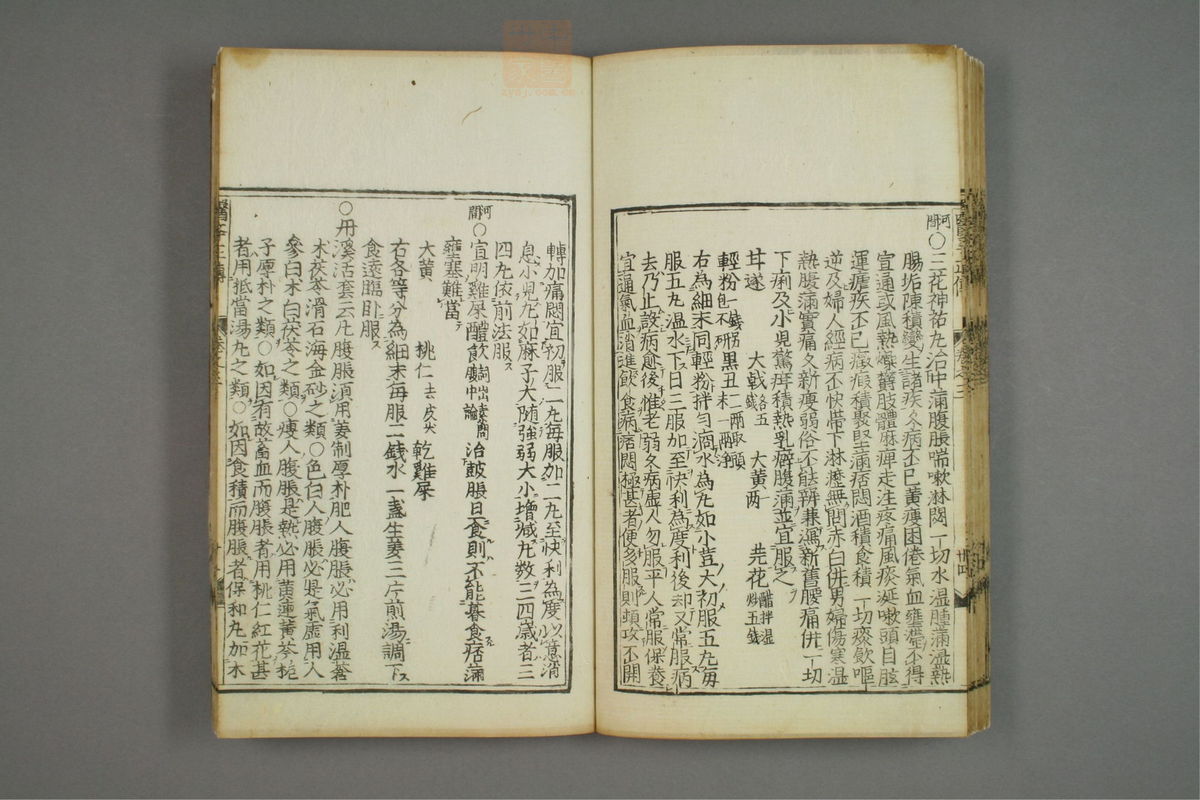 河間
○三花神祐丸治中滿腹脹喘嗽淋悶一切水温腫滿濕熱
腸垢陳積變生諸疾久病不已黄瘦困倦氣血壅滯不得
宣通或風熱燥鬱肢體麻痺走注疼痛風痰涎嗽頭目眩
運瘧疾不已癥瘕積聚堅滿痞悶酒積食積一切痰飲嘔
逆及婦人經病不快帶下淋瀝無問赤白併男婦傷寒温
熱腹滿實痛久新瘦弱俗不能辨兼瀉新舊腰痛併一切
下痢及小兒驚疳積熱乳癖腹滿並宜服之
甘遂 大戟各五錢 大黄一两 芫花醋拌濕炒五錢
輕粉一錢 黑丑末二两取頭
右為細末同輕粉拌勻滴水為丸如小豆大初服五丸每
服五丸温水下日三服加至快利為度利後却又常服病
去乃止設病愈後惟老弱久病虚人勿服平人常服保養
宜通氣血消進飲食病痞悶極甚者便多服則頓攻不開
轉加痛悶宜初服二丸每服加二丸至快利為度以意消
息小兒丸如麻子大随強弱大小增减丸数三四歳者三
四丸依前法服
河間
○宣明雞屎醴飲詞出素問腹中論 治鼓脹旦食則不能暮食痞滿
壅塞難當
大黄 桃仁去皮尖 乾雞屎
右各等分為細末每服二錢水一盞生姜三片煎湯調下
食遠臨卧服
○丹溪活套云凡腹脹須用姜制厚朴肥人腹脹必用利温蒼
术茯苓滑石海金砂之類○色白人腹脹必是氣虚用人
參白术白茯苓之類○瘦人腹脹是熱必用黄連黄芩梔
子厚朴之類○如因有故蓄血而腹脹者用桃仁紅花甚
者用抵當湯丸之類○如因食積而腹脹者保和丸加木